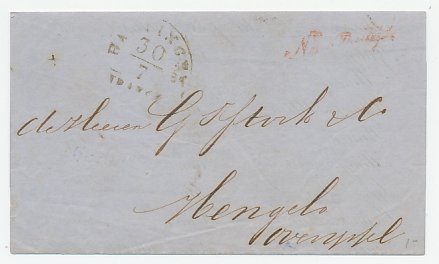 HARLINGEN
30
7
FRANCO
de Heeren G Stork & Co
Hengelo
Overijssel